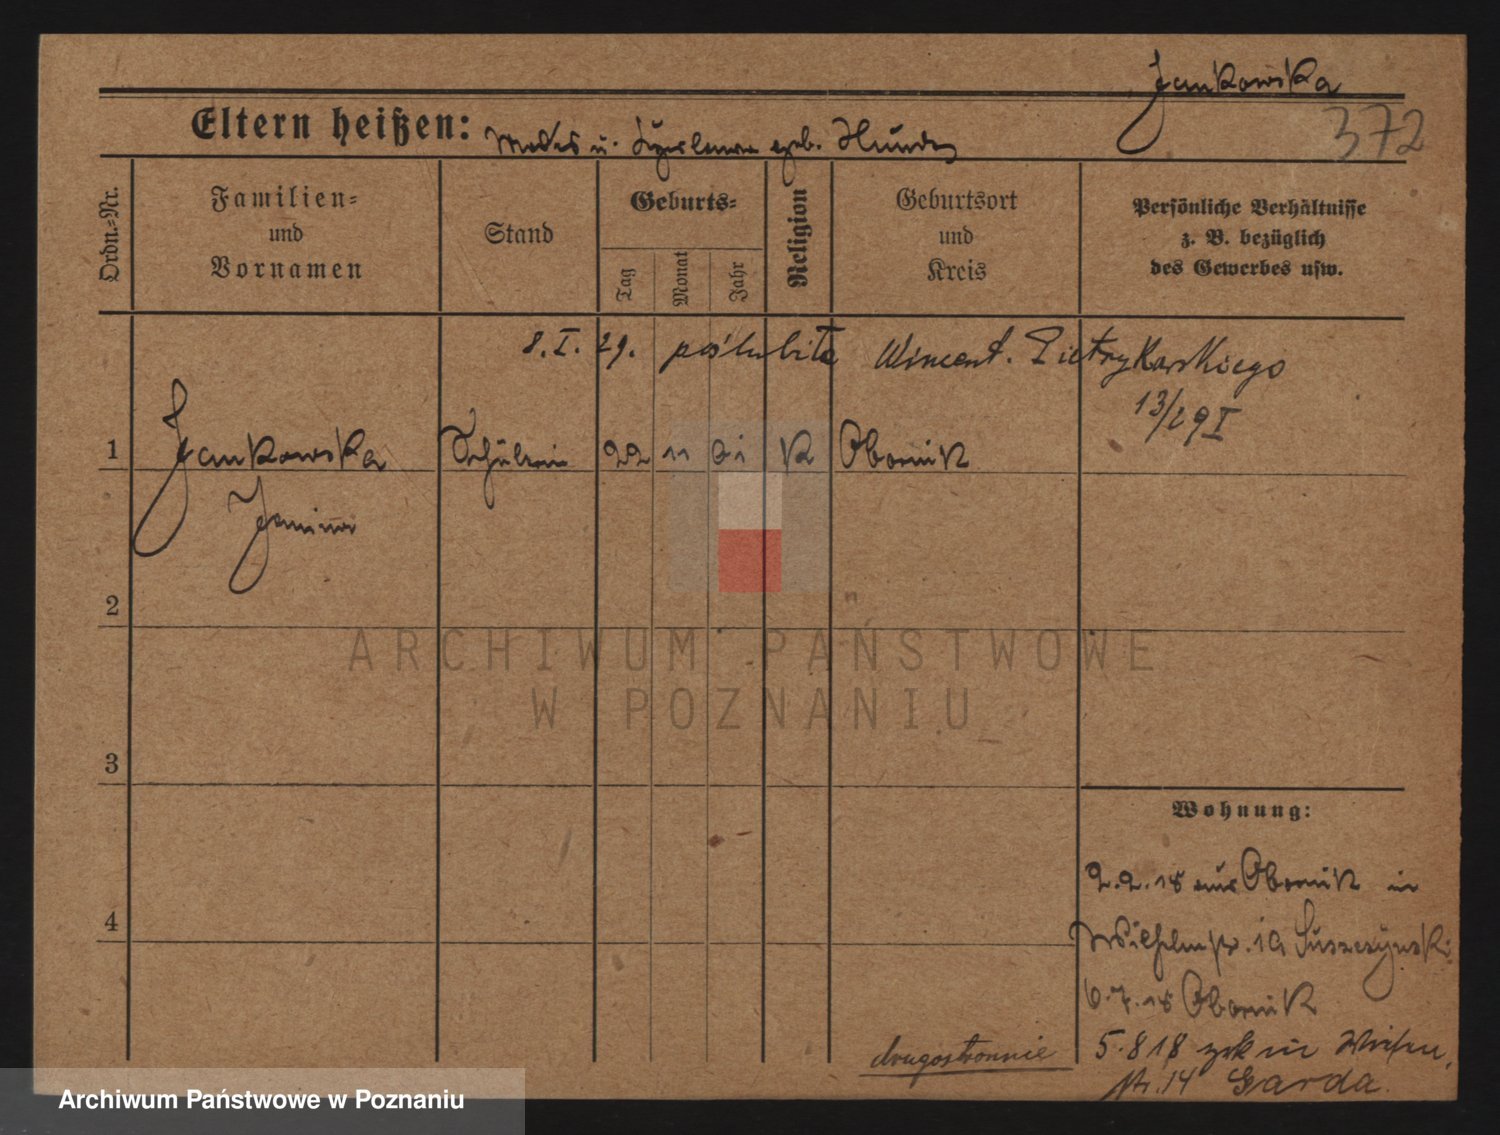 Jankowska
372
Eltern heißen: u. geb.
Ordn.=Nr.
Familien=
und
Vornamen
Stand
Geburts=
Tag
Monat
Jahr
Religion
Geburtsort
und
Kreis
Persönliche Verhältnisse
z. B. bezüglich
des Gewerbes usw.
8. I. 29. poślubiła Wincent. Pietrykowskiego
13/29 I
1 Jankowska Schülerin 22 11 01 K Obornik
Janina
2
3
4
Wohnung:
2.2.18 aus Obornik in
Wilhelmstr. 19 Suszczynski
6.7.18 Obornik
5.8 18 zrk in
Nr. 14 Garda
drugostronnie
ARCHIWUM PAŃSTWOWE
W POZNANIU
Archiwum Państwowe w Poznaniu